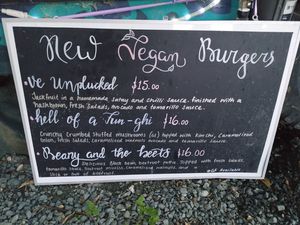 New Vegan Burgers
We Unplucked $15.00
Jackfruit in a homemade satay and chilli sauce, finished with a
hashbrown, fresh salads, avocado and tamarillo sauce.
hell of a Fun-ghi $16.00
Crunchy crumbed stuffed mushrooms topped with kimchi, caramelised
onion, fresh salads, caramelised walnuts avocado and tamarillo sauce.
Beany and the beets $16.00
Delicious Black bean, beetroot pattie, topped with fresh salads,
tamarillo sauce, beetroot caramelised walnuts, and a
of beetroot.
*GF Available